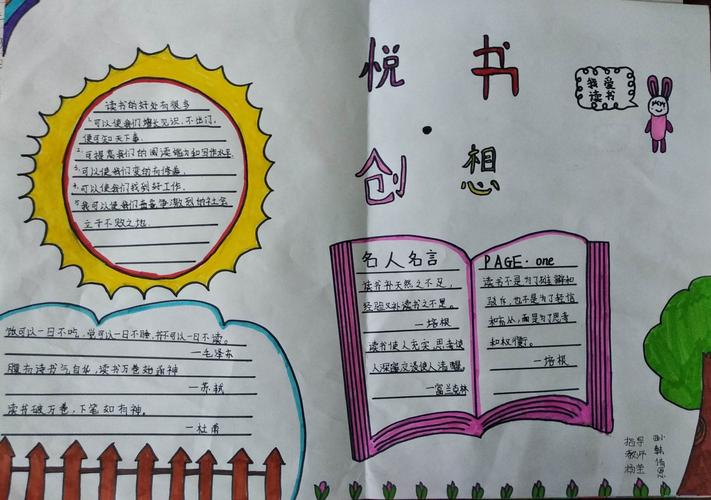 悦书
·
创想
我爱
读书
读书的好处有很多
1.可以使我们增长见识,不出门,
便可知天下事.
2.可提高我们的阅读能力和写作水平.
3.可以使我们变的有修养.
4.可以使我们找到好工作.
5.我可以使我们在竞争激烈的社会
立于不败之地.
名人名言
读书补天然之不足,
经验又补读书之不足。
—培根
读书使人充实,思考使
人深邃,交谈使人清醒。
—富兰克林
PAGE·one
读书不是为了雄辩和
驳斥,也不是为了轻信
和盲从,而是为了思考
和权衡。
—培根
饭可以一日不吃,觉可以一日不睡,书不可以一日不读。
—毛泽东
腹有诗书气自华,读书万卷始通神
—苏轼
读书破万卷,下笔如有神。
—杜甫
指导
教师